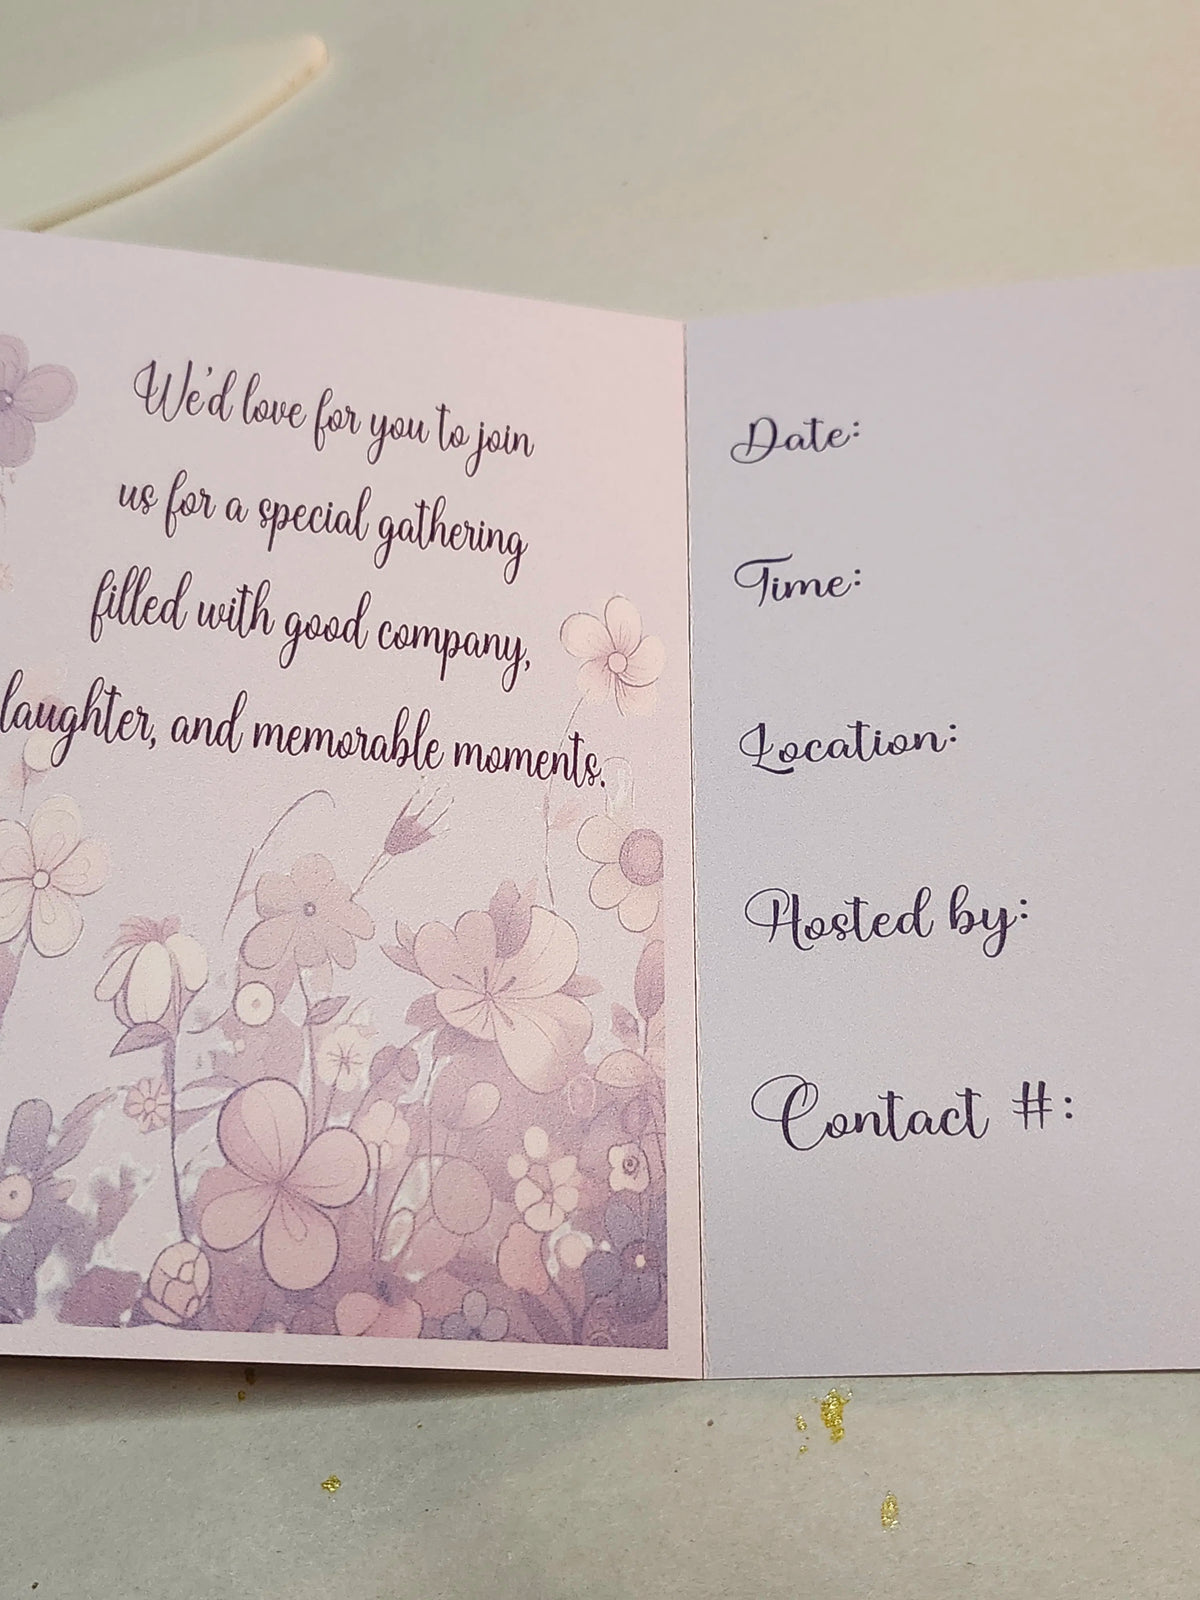 We'd love for you to join
us for a special gathering
filled with good company,
laughter, and memorable moments.
Date:
Time:
Location:
Hosted by:
Contact #: